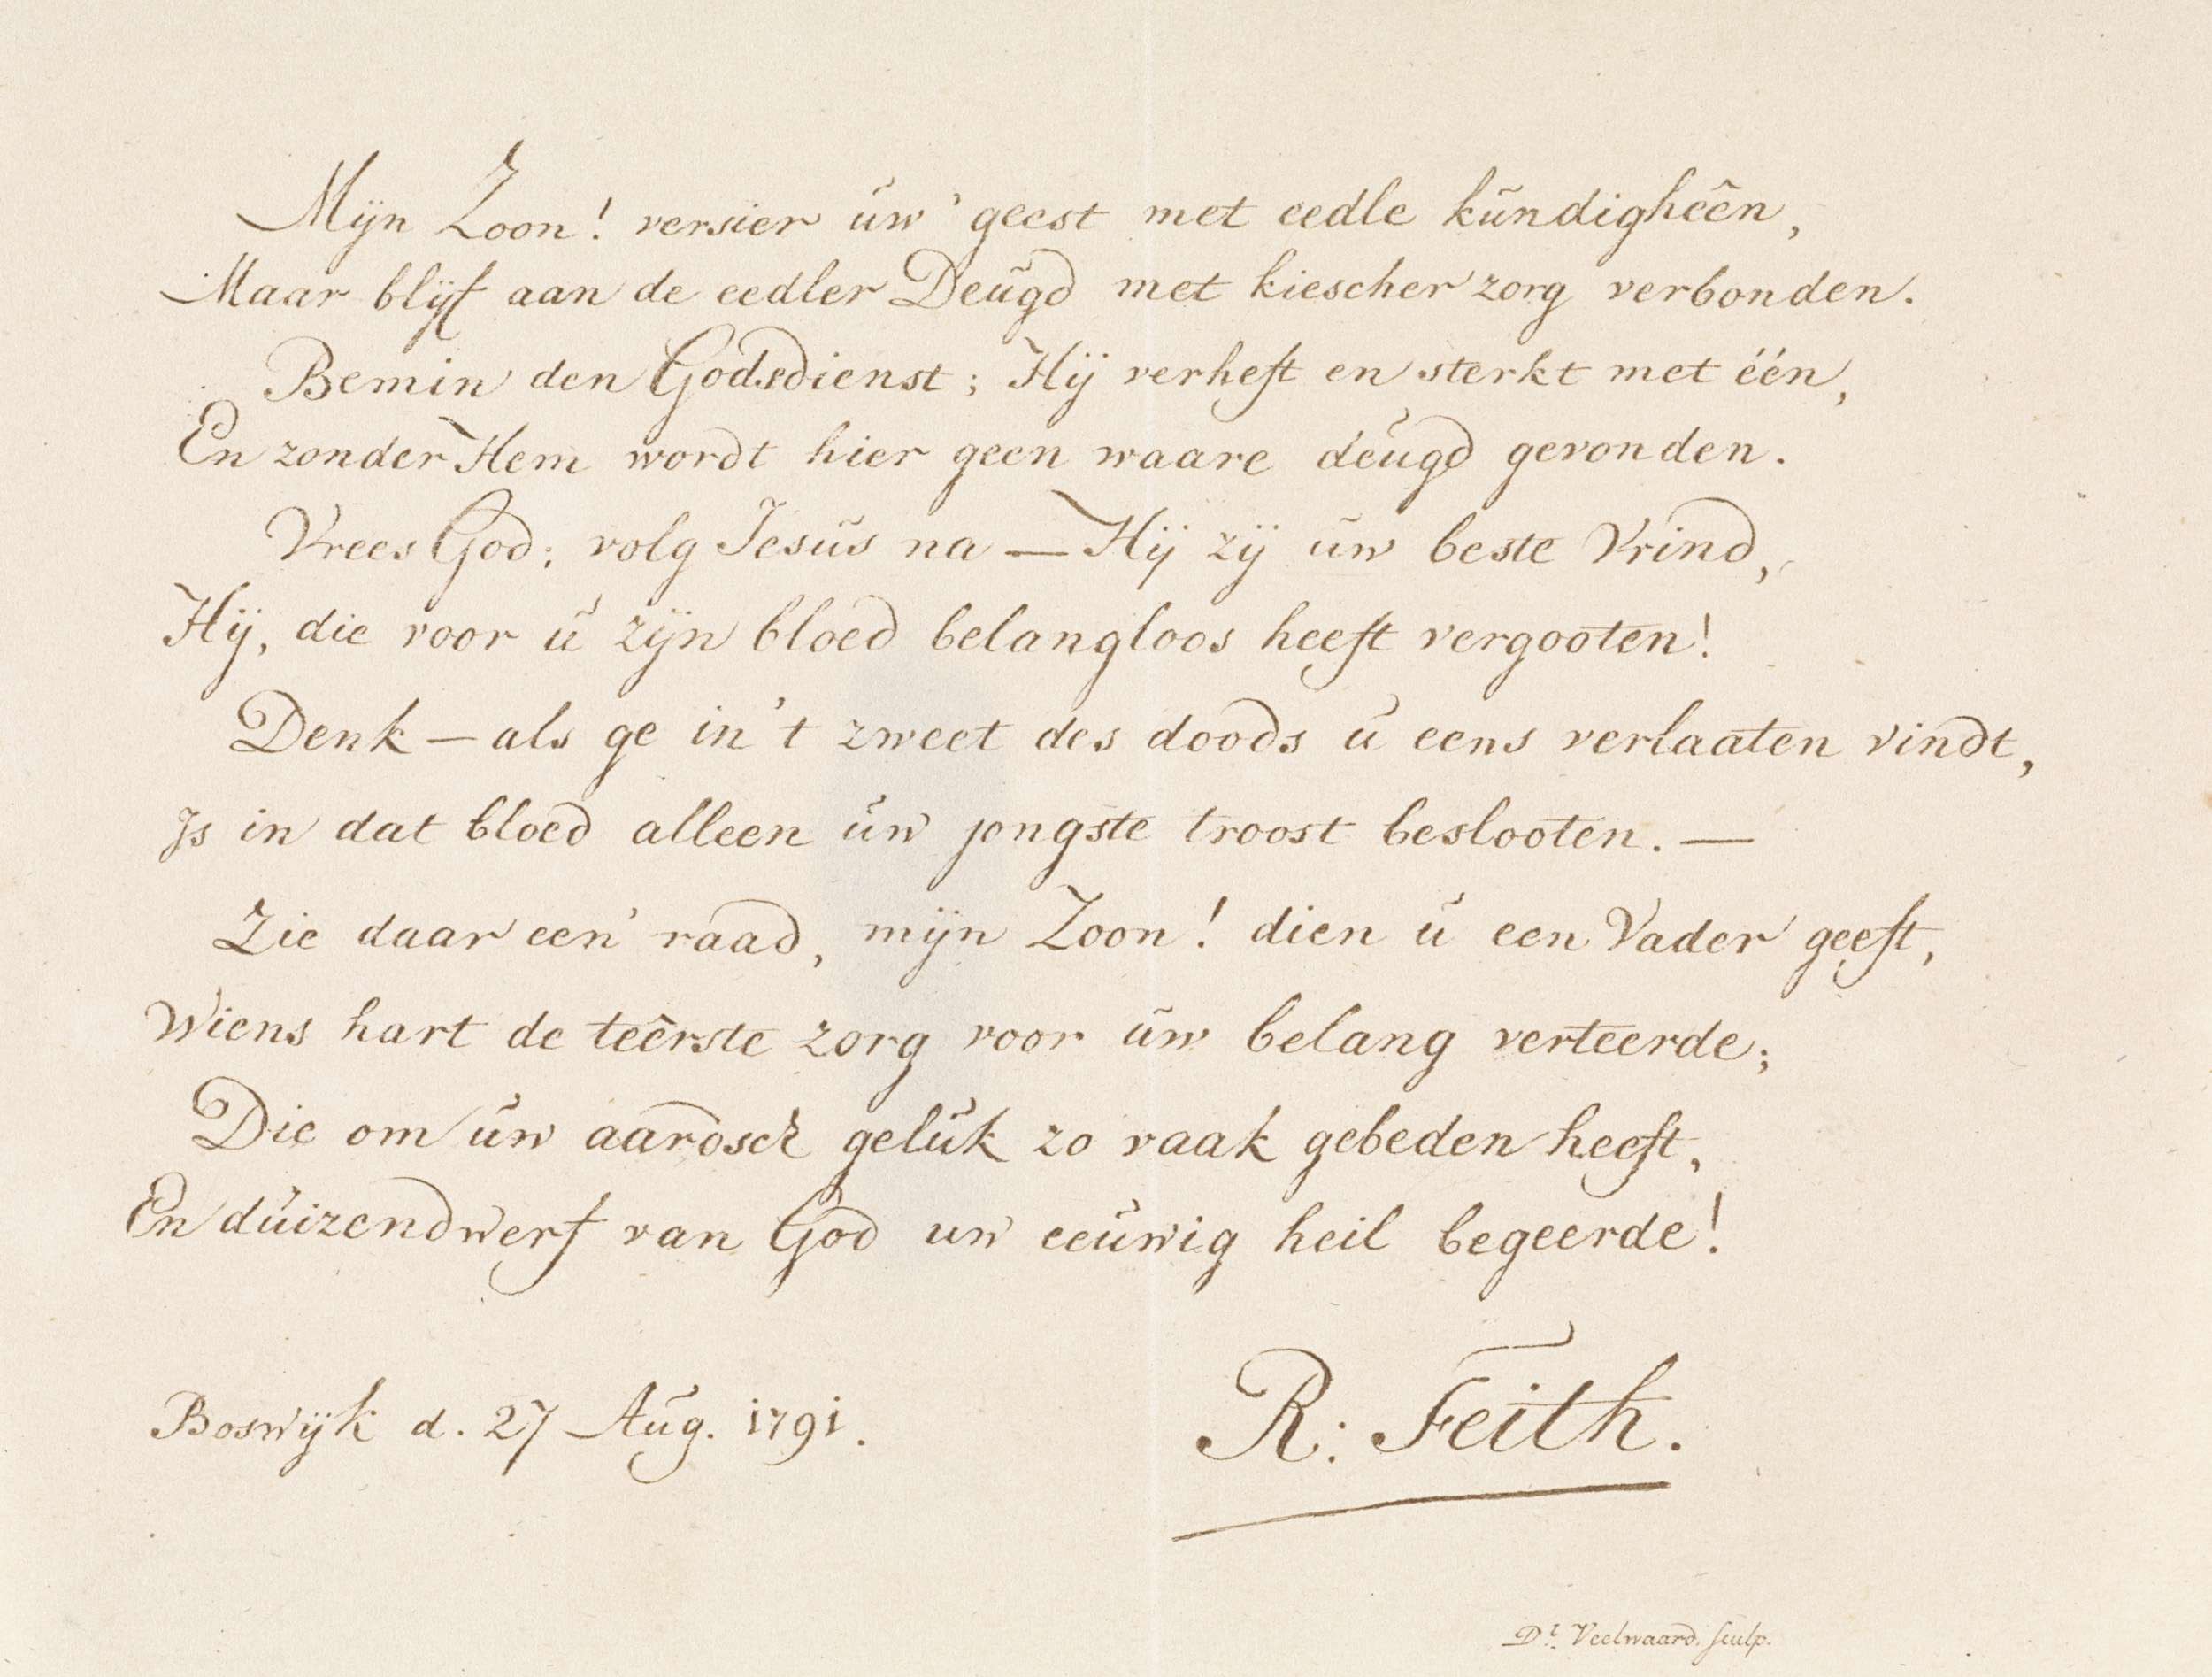 Mijn Zoon! versier uw' geest met eedle kundighêên,
Maar blijf aan de eedler Deugd met kiescher zorg verbonden.
Bemin den Godsdienst; Hij verheft en sterkt met één,
En zonder Hem wordt hier geen waare deugd gevonden.
Vrees God; volg Jesus na — Hij zij uw beste Vrind,
Hij, die voor u zijn bloed belangloos heeft vergooten!
Denk — als ge in 't zweet des doods u eens verlaaten vindt,
Is in dat bloed alleen uw jongste troost beslooten. —
Zie daar een' raad, mijn Zoon! dien u een Vader geeft,
Wiens hart de teêrste zorg voor uw belang verteerde;
Die om uw aardsch geluk zo vaak gebeden heeft,
En duizendwerf van God uw eeuwig heil begeerde!
Boswijk d. 27 Aug. 1791.
R: Feith.
Dl. Veelwaard. sculp.